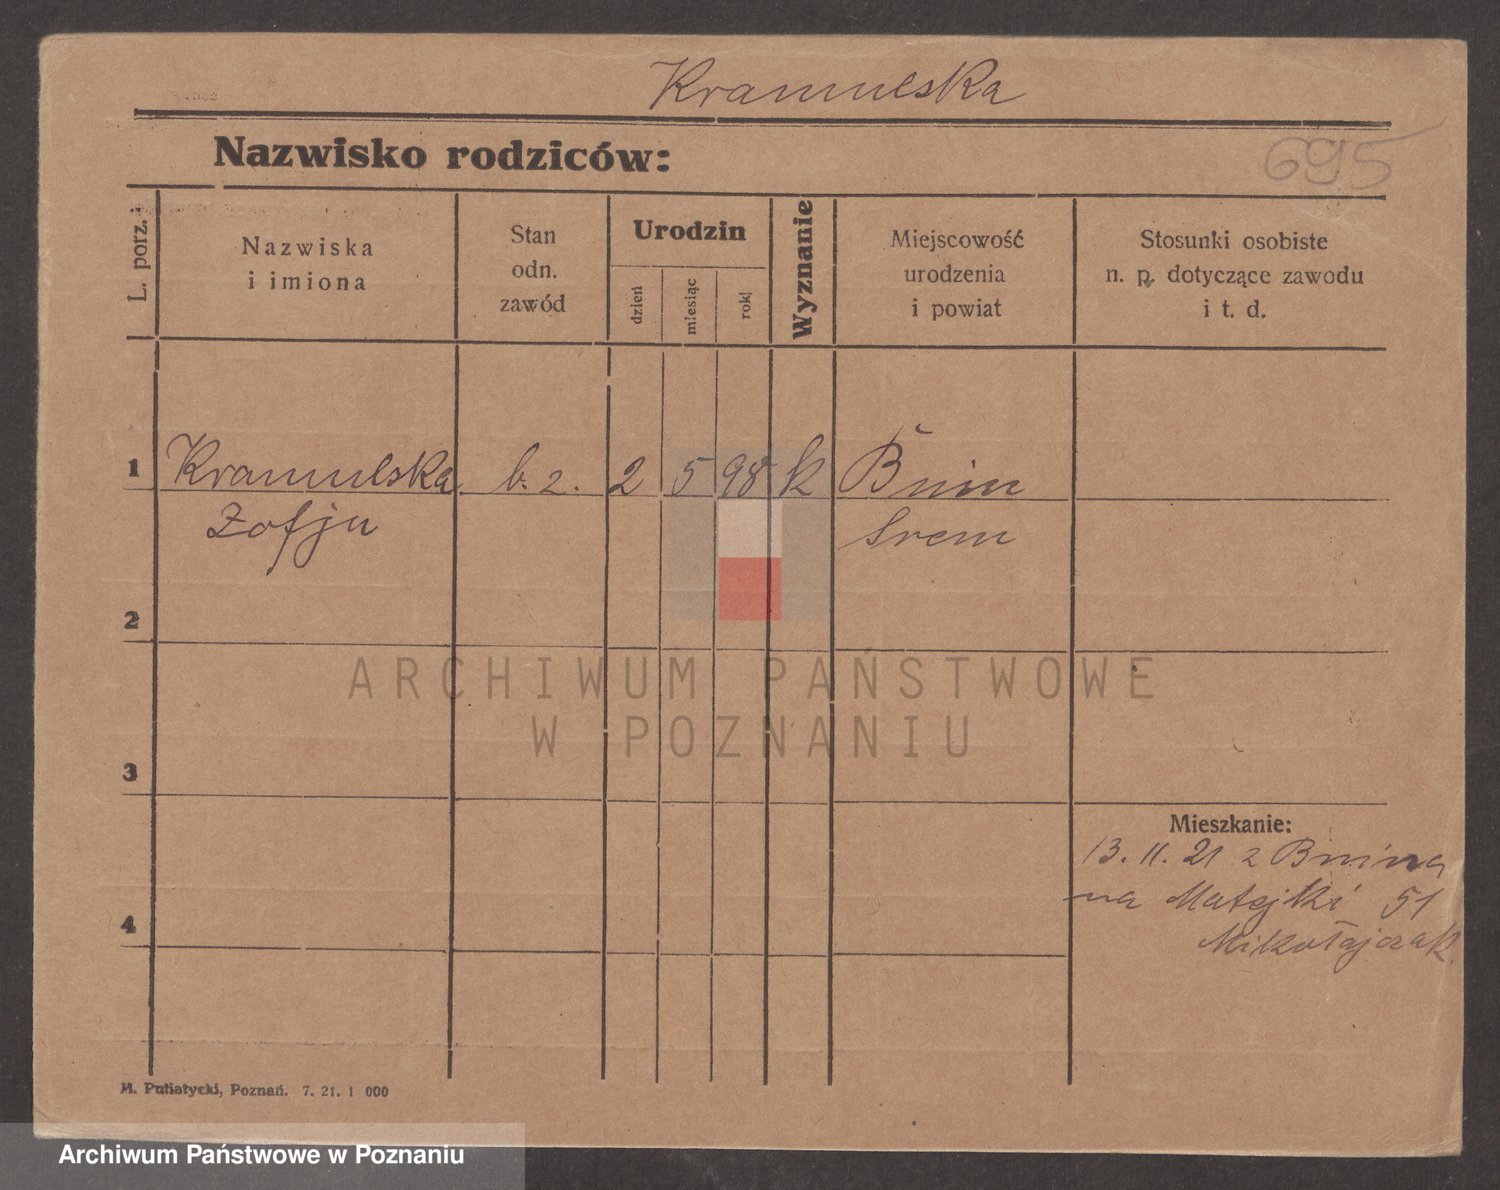 Kramulska
Nazwisko rodziców:
695
L. porz.
Nazwiska
i imiona
Stan
odn.
zawód
Urodzin
dzień
miesiąc
rok
Wyznanie
Miejscowość
urodzenia
i powiat
Stosunki osobiste
n. p. dotyczące zawodu
i t. d.
1 Kramulska b. z. 2 5 98 k Bnin
Zofja Srem
2
ARCHIWUM PAŃSTWOWE
W POZNANIU
3
Mieszkanie:
13. 11. 21 z Bnina
na Matejki 51
Mikołajczak
4
M. Putiatycki, Poznań. 7. 21. 1 000
Archiwum Państwowe w Poznaniu